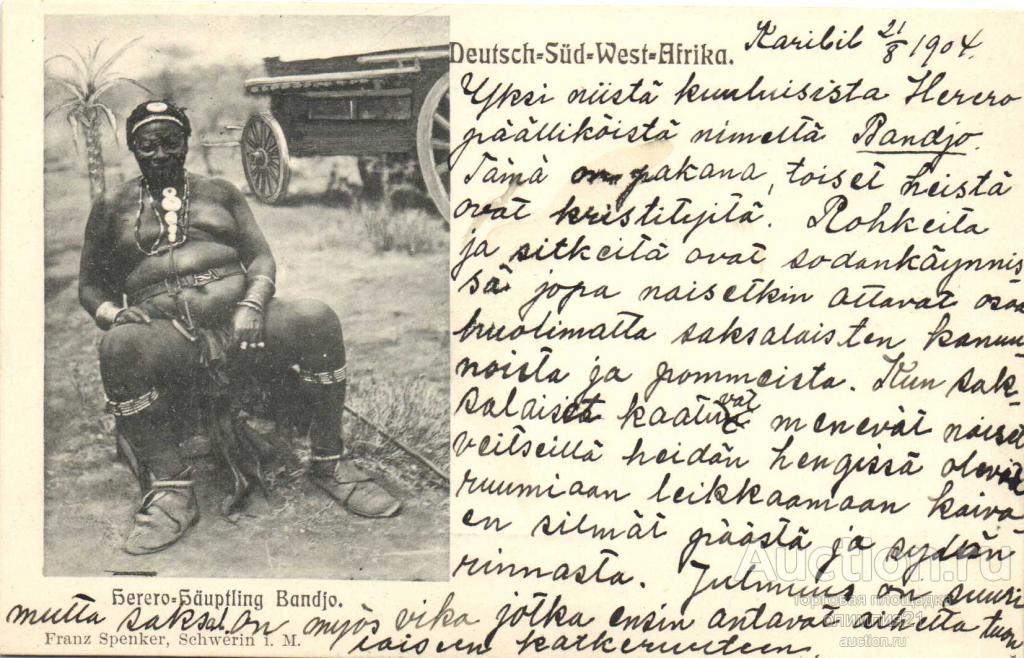 Deutsch-Süd-West-Afrika.
Karibib 21/8 1904.
Yksi niistä kuuluisista Herero
päälliköistä nimeltä Bandjo.
Tämä on pakana, toiset heistä
ovat kristityitä. Rohkeita
ja sitkeitä ovat sodankäynnis
sä jopa naisetkin ottavat osaa
huolimatta saksalaisten kanuu
noista ja pommeista. Kun sak-
salaiset kaatuvat menevät naiset
veitseillä heidän hengissä olevia
ruumiaan leikkaamaan kaiva
en silmät päästä ja sydän
rinnasta. Julmuus on suuri
mutta saksal. on myös vika jotka ensin antavat aihetta
laiseen katkeruuteen.
Herero-Häuptling Bandjo.
Franz Spenker, Schwerin i. M.
Auction.ru
торговая площадка
олимпия21
auction.ru